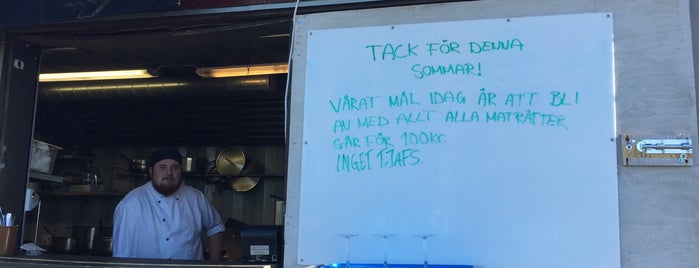 TACK FÖR DENNA
SOMMAR!
VÅRAT MÅL IDAG ÄR ATT BLI
AV MED ALLT. ALLA MATRÄTTER
GÅR FÖR 100Kr.
INGET TJAFS.